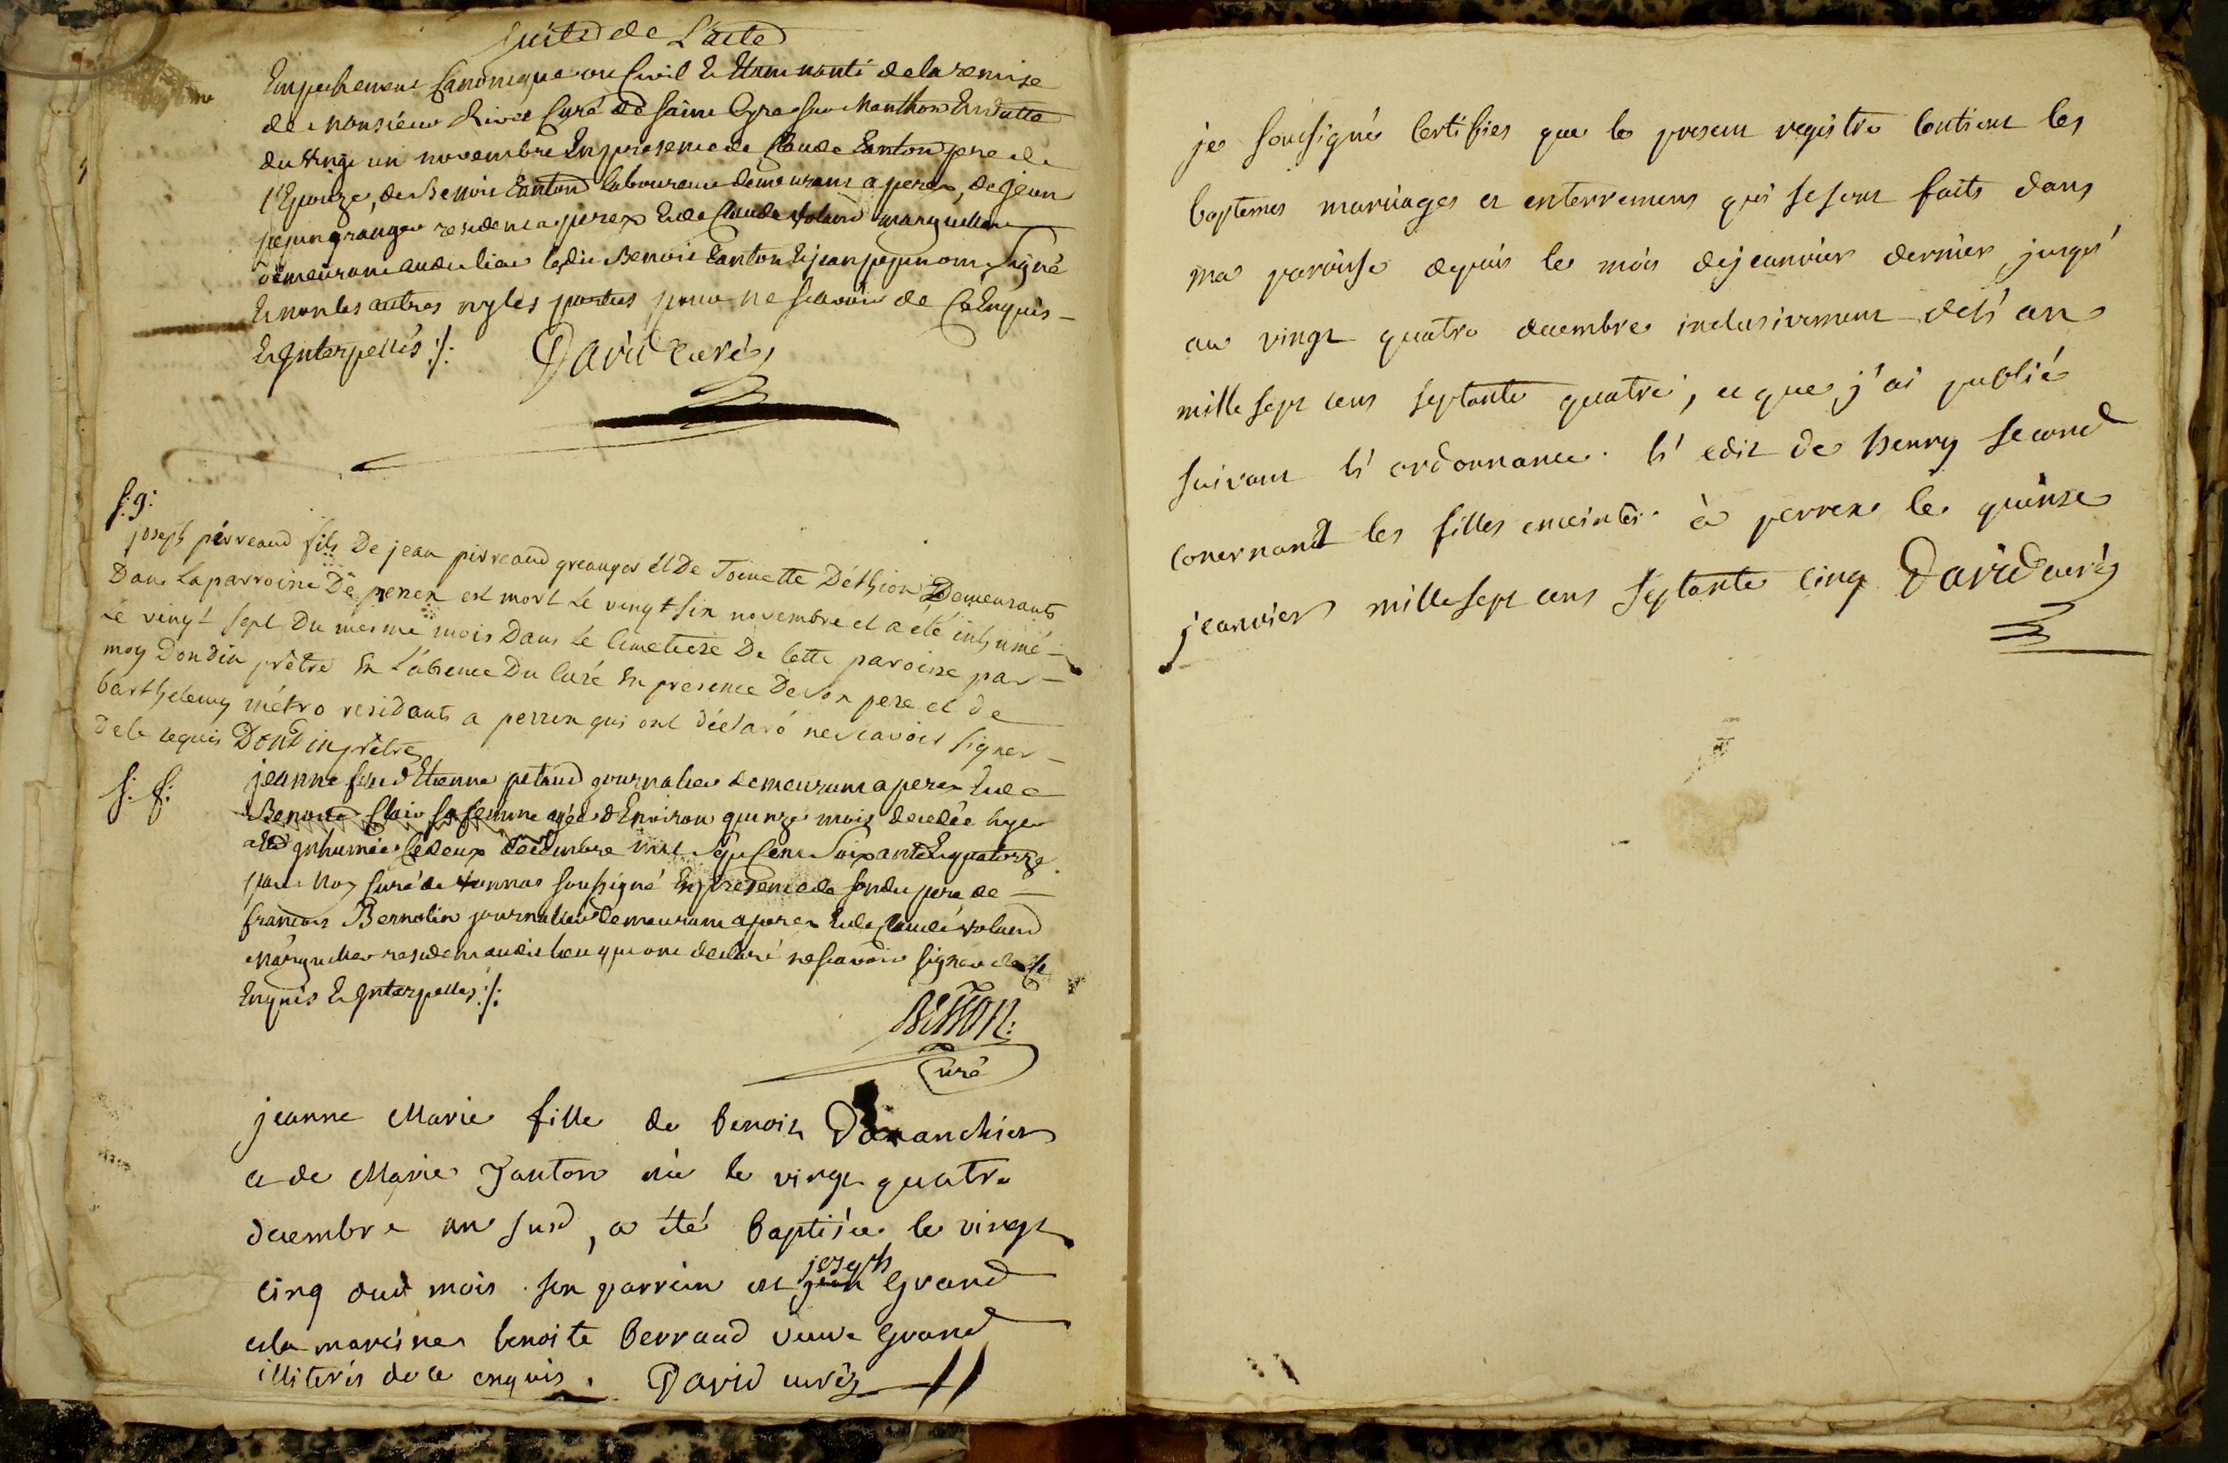 suite de L'acte
Empechement Canonique ou Civil Et Etant nanti de la remise
de Monsieur Rivet Curé de Saint Cyr sur Manthon En datte
du vingt un novembre En presence de Claude Canton pere de
l'Epouze, de Benoit Canton laboureur demeurant a perex, de jean
pepin granger resident a perex Et de Claude Voland marguillier
demeurant audit lieu ledit Benoit Canton Et jean pepin ont signé
Et non les autres ny les parties pour ne sçavoir de Ce Enquis
Et Interpellés ./.
David curé
s: g:
joseph pirreaud fils De jean pirreaud granger et De Toinette Déthion Demeurants
Dans la parroisse De perex est mort Le vingt six novembre et a eté inhumé
Le vingt sept Du mesme mois Dans le Cimetiere De Cette paroisse par
moy Dondin prêtre En L'absence Du Curé En presence De son pere et de
barthelemy métro residants a perrex qui ont déclaré ne scavoir signer
De ce requis Dondin prêtre
s: f:
jeanne fille d'Etienne petaud journalier demeurant a perex Et de
Benoite Clair sa femme agée d'Environ quinze mois decedée hyer
a Eté Inhumée Ce deux decembre mil sept Cent Soixante Et quatorze
par Moy Curé de Vonnas soussigné En presence de sondit pere, de
francois Bernolin journalier demeurant a perex Et de Claude Voland
Marguillier resident audit lieu qui ont declaré ne scavoir signer de Ce
Enquis Et Interpellés ./.
Curé
jeanne Marie fille de benoit Dananchier
et de Marie Janton née le vingt quatre
decembre an susd, a été baptisée le vingt
joseph
cinq dud mois. son parrein est jean Grand
et la mareine benoite berraud veuve Grand
illiterés de ce enquis. David curé
je soussigné Certifies que le present registre Contient les
baptemes mariages et enterremens qui se sont faits dans
ma paroisse depuis le mois de jeanvier dernier, jusqu'
au vingt quatre decembre inclusivement de l'an
mille sept cens septante quatre, et que j'ai publié
suivant l'ordonnance. l'edit de henry second
concernant les filles enceintes. à perrex le quinse
jeanvier mille sept cens septante cinq David curé